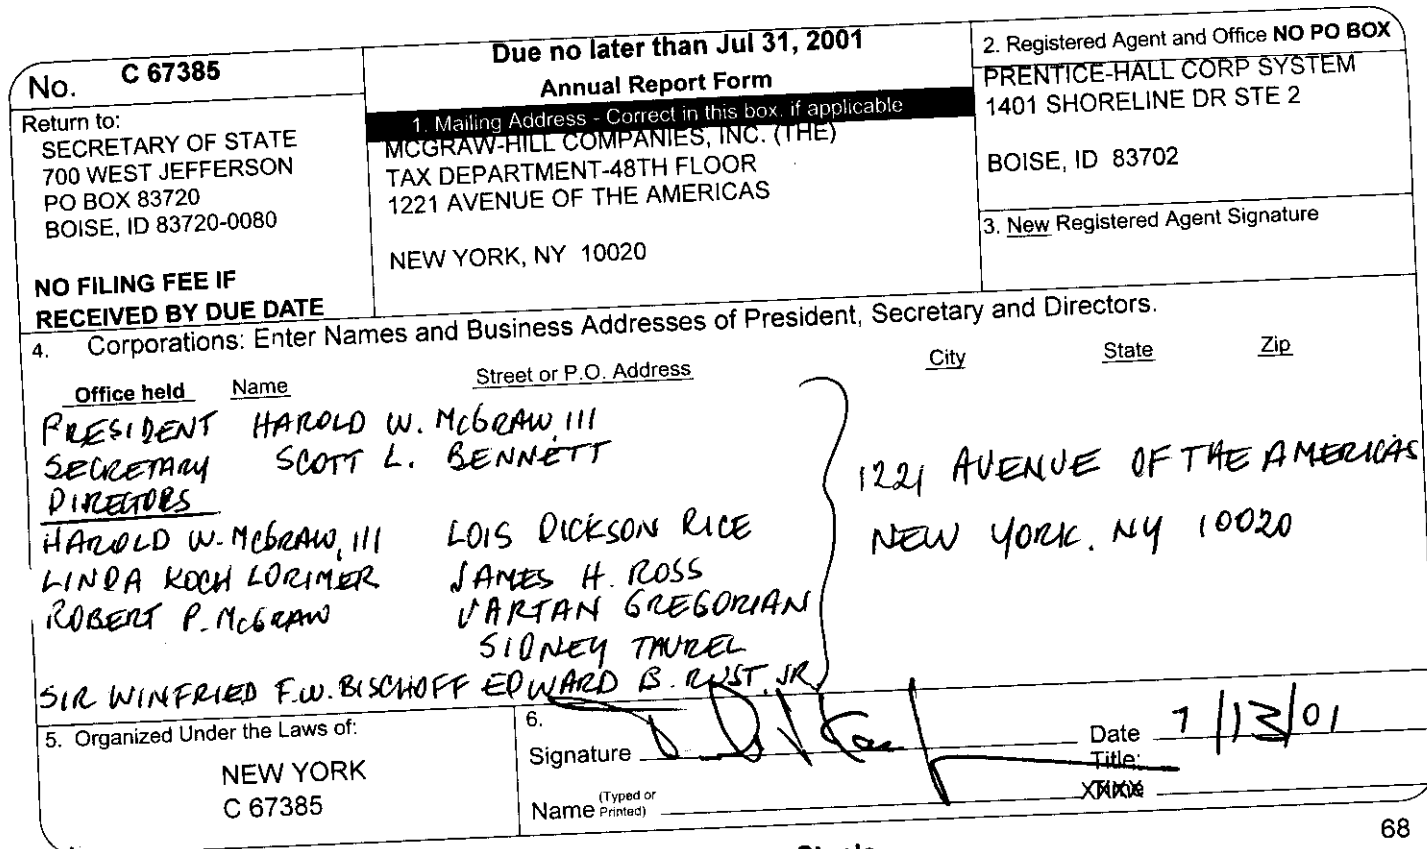 No. C 67385
Return to:
SECRETARY OF STATE
700 WEST JEFFERSON
PO BOX 83720
BOISE, ID 83720-0080
NO FILING FEE IF
RECEIVED BY DUE DATE
Due no later than Jul 31, 2001
Annual Report Form
1. Mailing Address - Correct in this box, if applicable
MCGRAW-HILL COMPANIES, INC. (THE)
TAX DEPARTMENT-48TH FLOOR
1221 AVENUE OF THE AMERICAS
NEW YORK, NY 10020
2. Registered Agent and Office NO PO BOX
PRENTICE-HALL CORP SYSTEM
1401 SHORELINE DR STE 2
BOISE, ID 83702
3. New Registered Agent Signature
4. Corporations: Enter Names and Business Addresses of President, Secretary and Directors.
Office held Name Street or P.O. Address City State Zip
PRESIDENT HAROLD W. McGRAW, III
SECRETARY SCOTT L. BENNETT
DIRECTORS
HAROLD W. McGRAW, III LOIS DICKSON RICE
LINDA KOCH LORIMER JAMES H. ROSS
ROBERT P. McGRAW VARTAN GREGORIAN
SIDNEY TAUREL
SIR WINFRIED F.W. BISCHOFF EDWARD B. RUST, JR
1221 AVENUE OF THE AMERICAS
NEW YORK, NY 10020
5. Organized Under the Laws of:
NEW YORK
C 67385
6.
Signature
Date 7/13/01
Title:
Name (Typed or Printed)
68